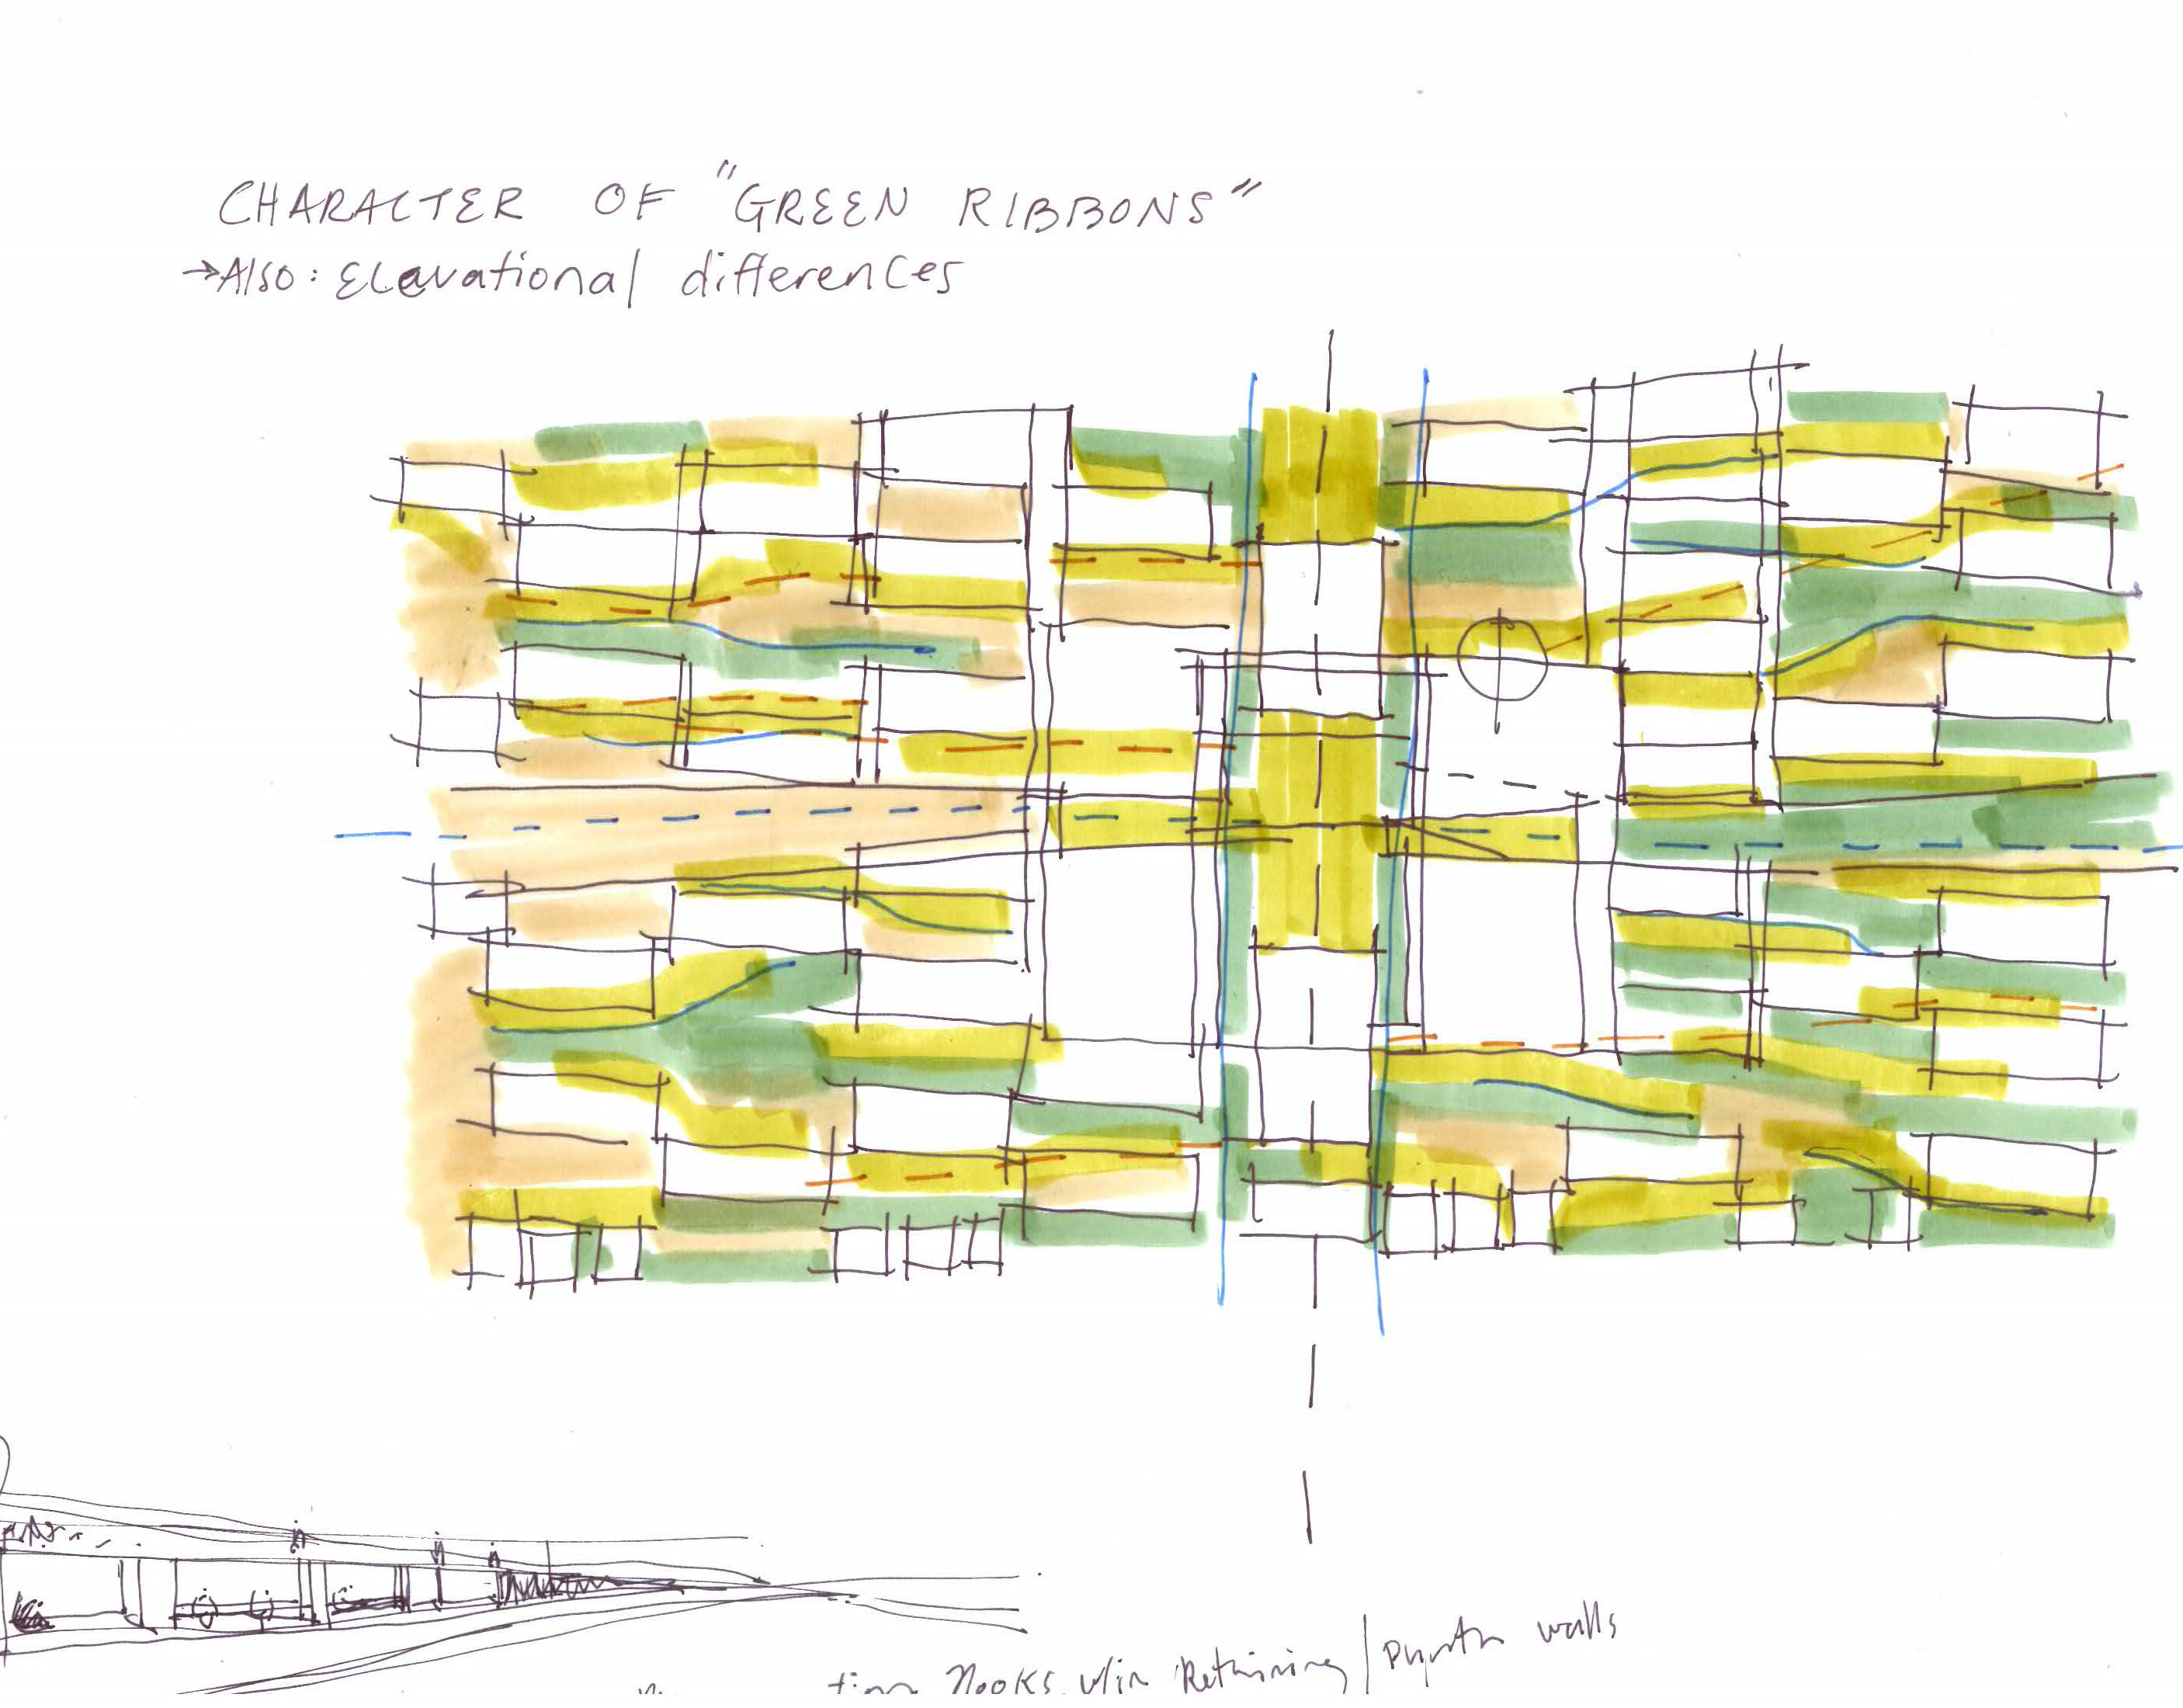 CHARACTER OF "GREEN RIBBONS"
→Also: Elevational differences
Nooks w/in Retaining / walls